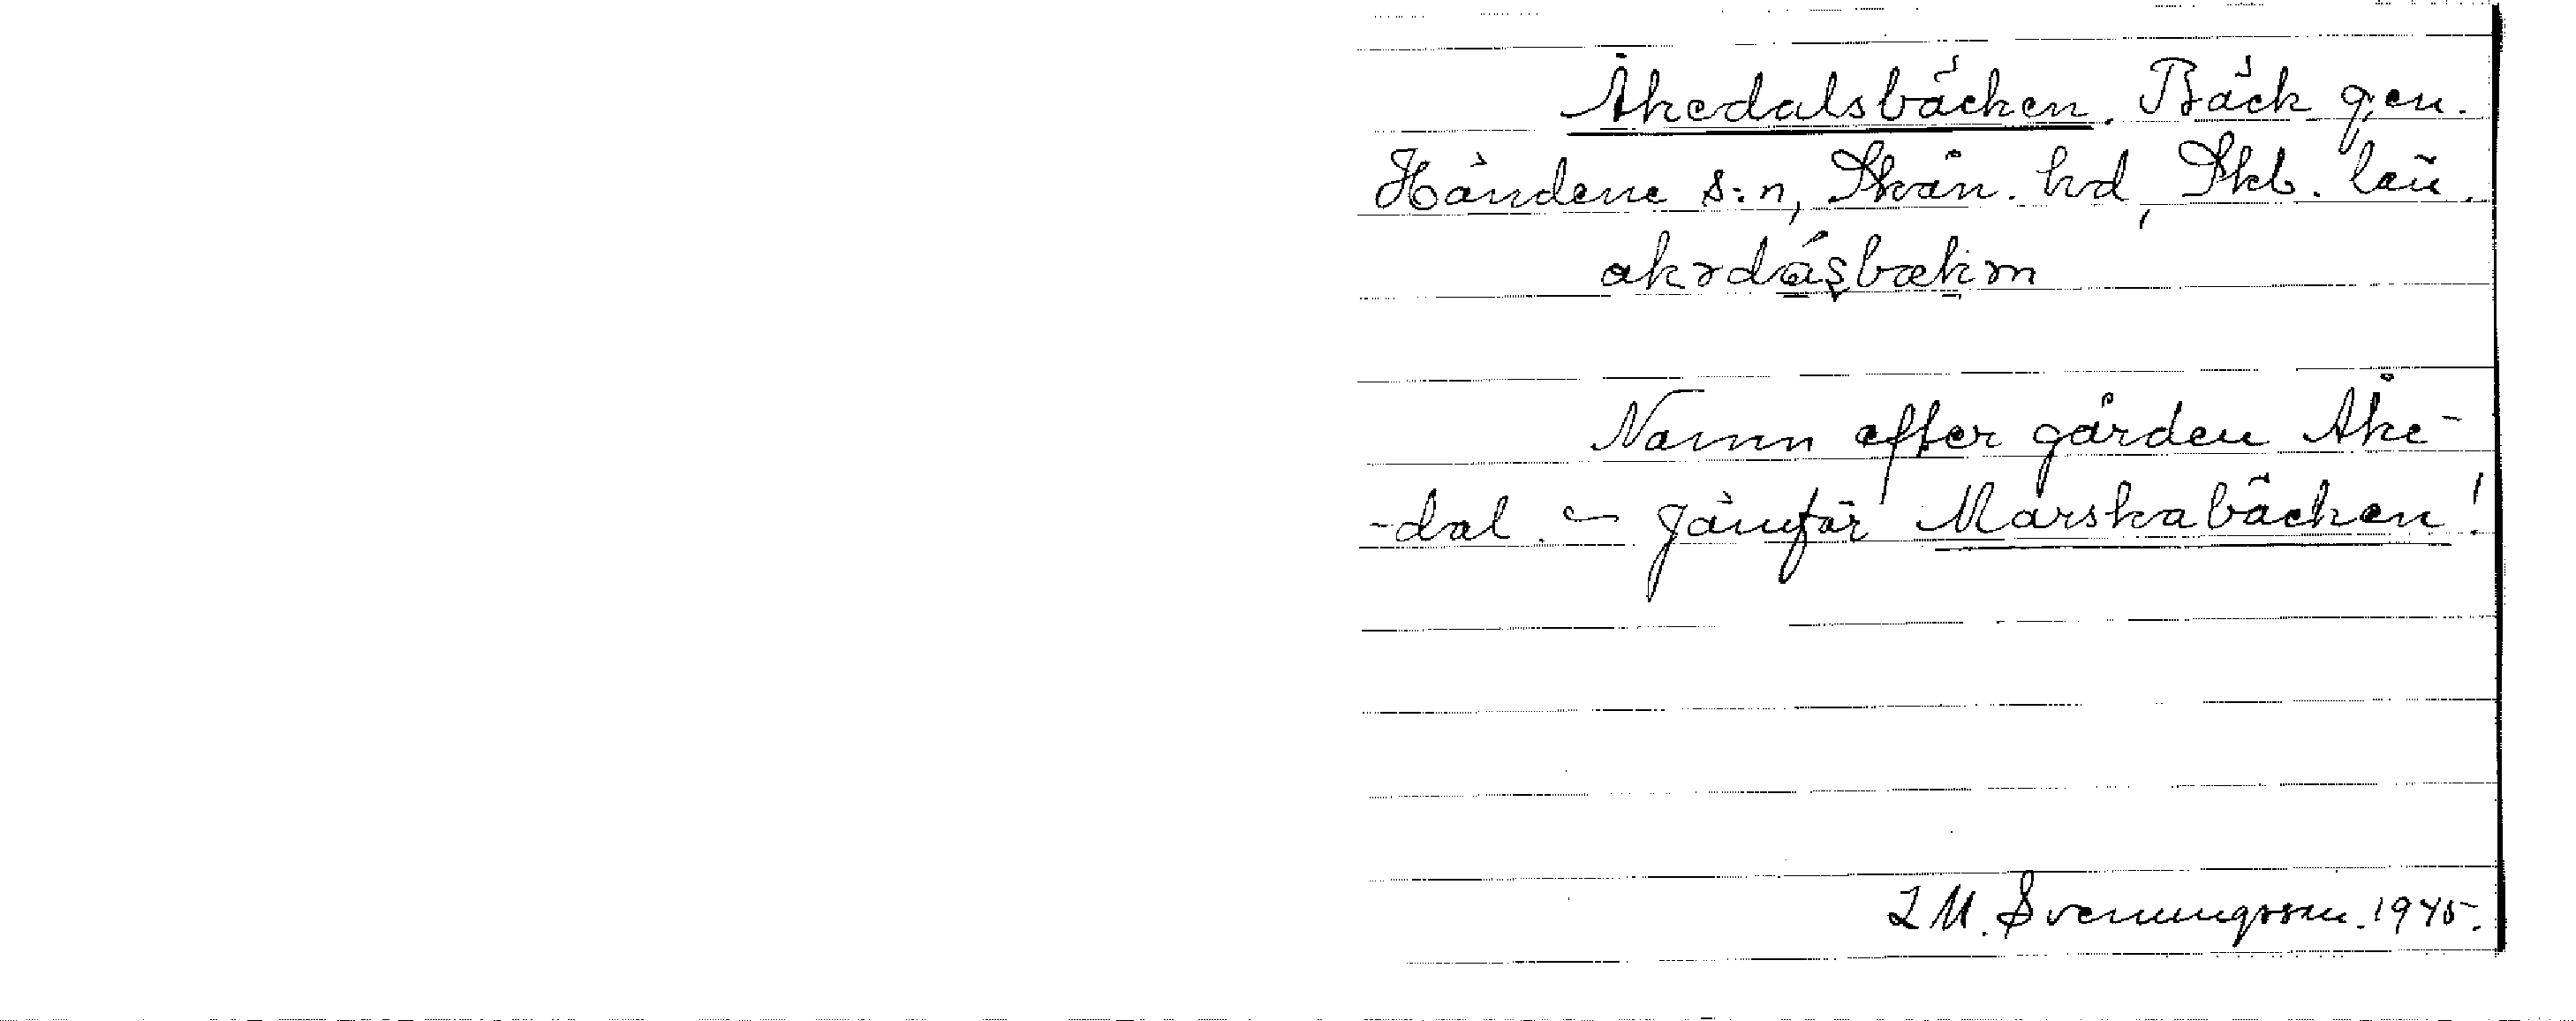 Åkedalsbäcken. Bäck gen.
Händene s:n, Skån. hd, Skb. län.
akədásbækən
Namn efter gården Åke-
-dal. – Jämför Marskabäcken!
L M. Svenungsson. 1945.